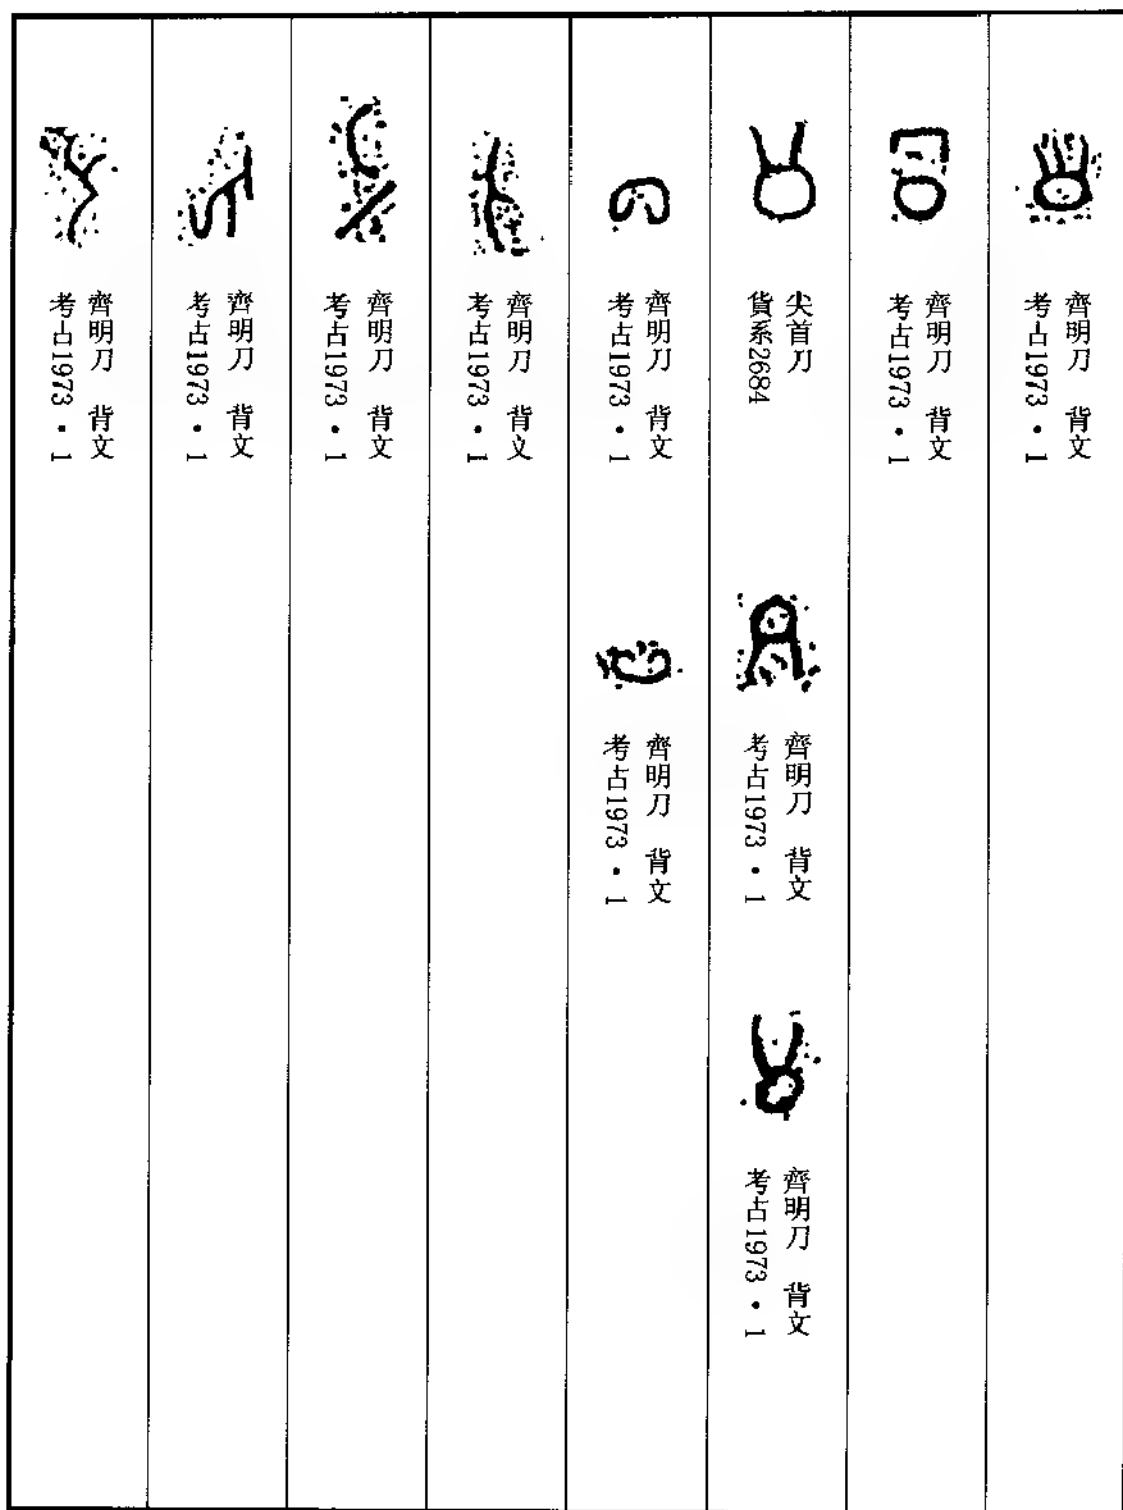 齊明刀 背文
考古1973・1
齊明刀 背文
考古1973・1
尖首刀
貨系2684
齊明刀 背文
考古1973・1
齊明刀 背文
考古1973・1
齊明刀 背文
考古1973・1
齊明刀 背文
考古1973・1
齊明刀 背文
考古1973・1
齊明刀 背文
考古1973・1
齊明刀 背文
考古1973・1
齊明刀 背文
考古1973・1